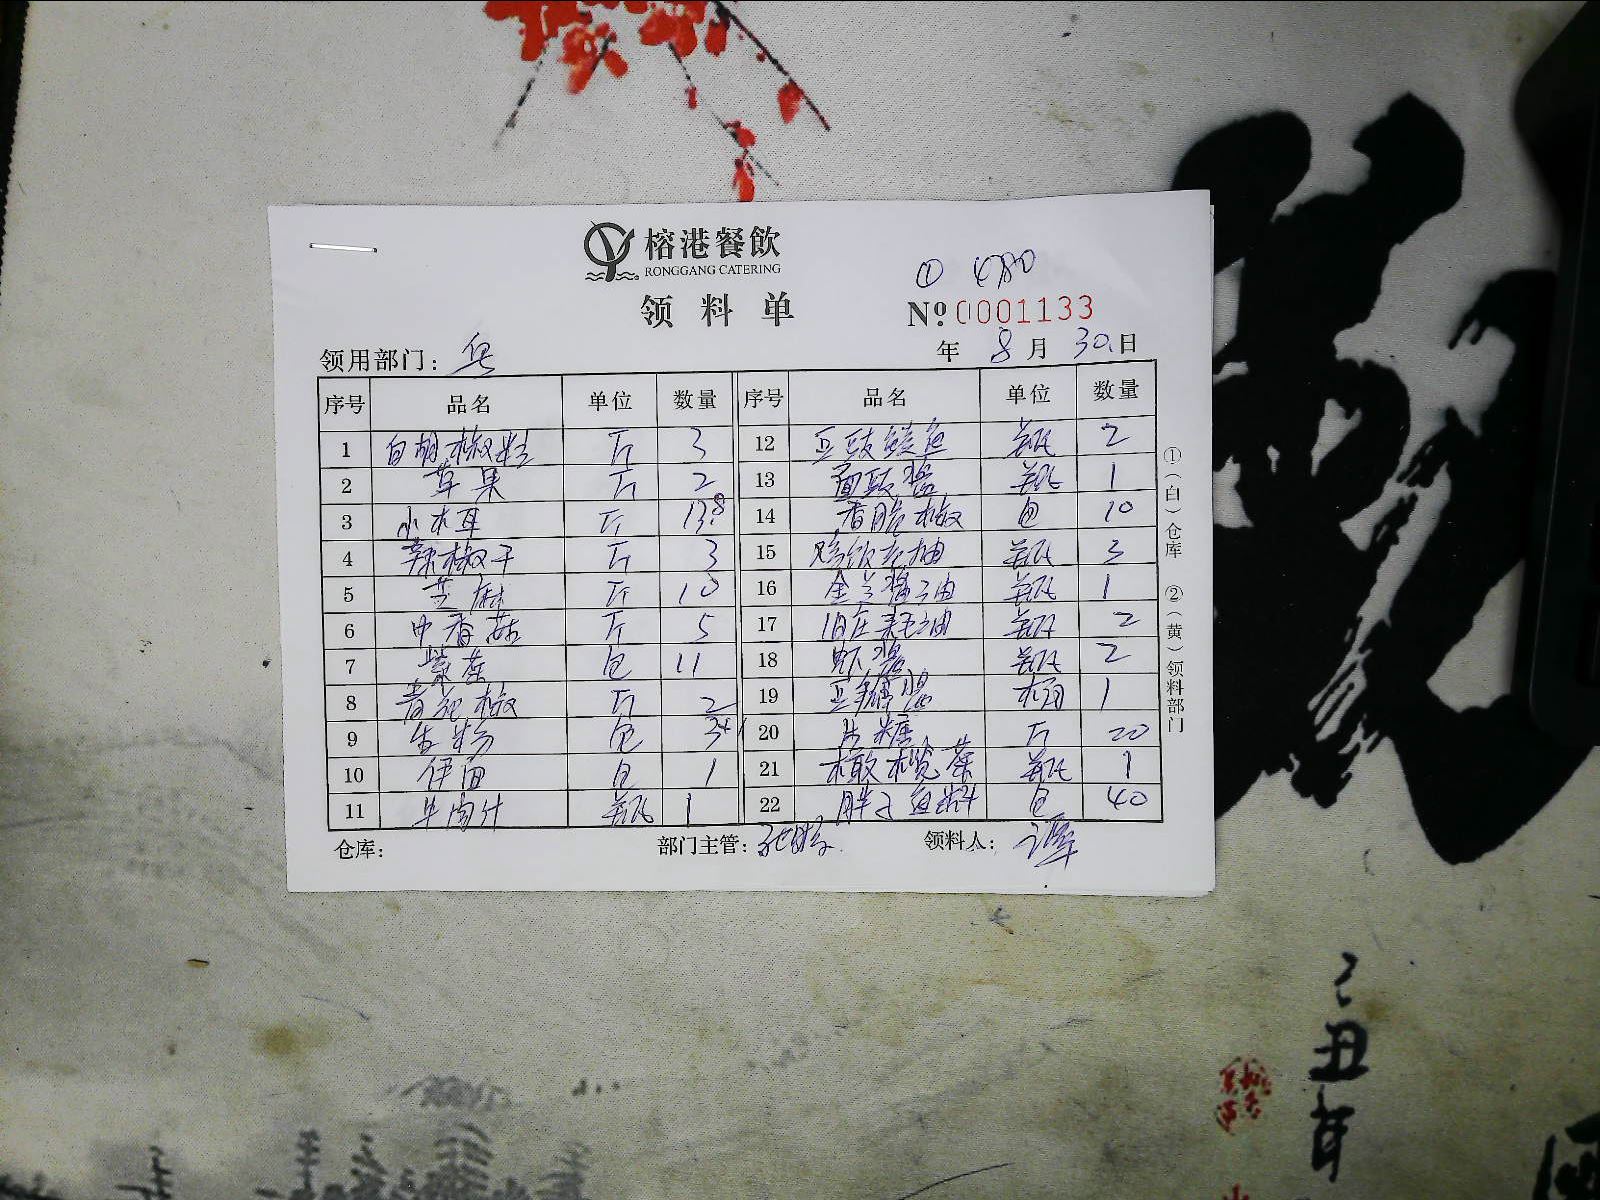 榕港餐飲
RONGGANG CATERING
① 480
领料单
№ 0001133
领用部门：
年 8月 30日
序号 品名 单位 数量 序号 品名 单位 数量
1 白胡椒粉 斤 3 12 豆豉鲮鱼 瓶 2
2 草果 斤 2 13 面豉酱 瓶 1
3 小木耳 斤 13.8 14 香脆椒 包 10
4 辣椒干 斤 3 15 老抽 瓶 3
5 芝麻 斤 10 16 金兰酱油 瓶 1
6 中香菇 斤 5 17 瓶 2
7 紫菜 包 11 18 虾酱 瓶 2
8 青花椒 斤 2 19 豆瓣酱 桶 1
9 生粉 包 20 片糖 斤 20
10 伊面 包 1 21 橄榄菜 瓶 1
11 牛肉汁 瓶 1 22 胖子鱼料 包 40
①（白）仓库 ②（黄）领料部门
仓库： 部门主管： 领料人：
己丑年